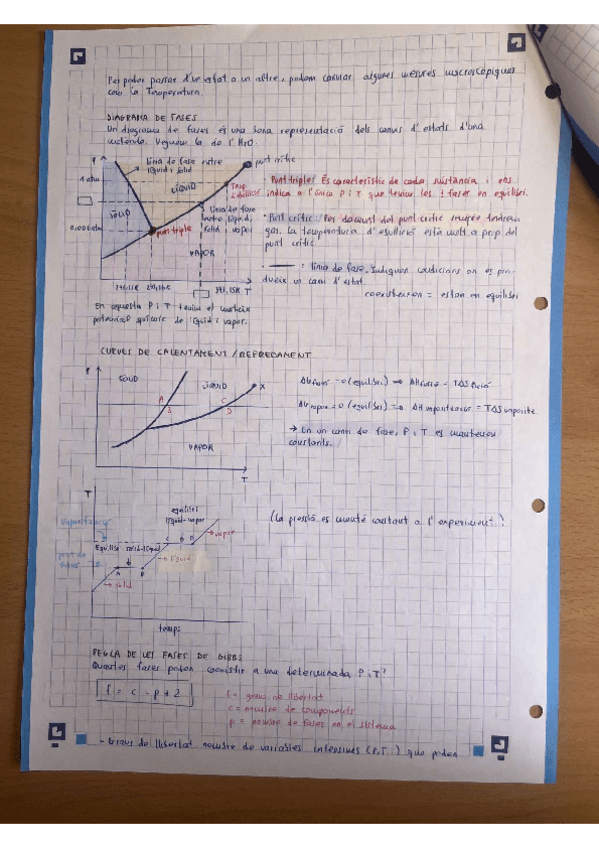 Per poder passar d'un estat a un altre, podem canviar algunes mesures macroscòpiques
com la Temperatura.
DIAGRAMA DE FASES
Un diagrama de fases és una bona representació dels canvis d'estats d'una
molècula. Vegem la de l'H2O.
P
1 atm
línia de fase entre
líquid i sòlid
punt crític
SÒLID
LÍQUID
Temp
línia de fase
entre líquid
i vapor
punt triple
VAPOR
373,15K T
En aquesta P i T tenim el mateix
potencial químic de líquid i vapor.
· Punt triple: És característic de cada substància i ens
indica a l'única P i T que tenim les 3 fases en equilibri.
· Punt crític: Per damunt del punt crític només tindrem
gas. La temperatura d'ebullició està molt a prop del
punt crític.
: línia de fase. Indiquen condicions on es pro-
dueix un canvi d'estat.
coexisteixen = estan en equilibri
CURVES DE CALENTAMENT / REFREDAMENT
P
SÒLID
LÍQUID
X
A
B
C
D
VAPOR
T
ΔGfusió = 0 (equilibri) → ΔHfusió = TΔSfusió
ΔGvapor = 0 (equilibri) → ΔHvaporització = TΔSvaporitz
→ En un canvi de fase, P i T es mantenen
constants.
T
equilibri
líquid-vapor
vapor
Equilibri sòlid-líquid
C
D
líquid
A
B
sòlid
temps
(La pressió es manté constant a l'experiment!)
REGLA DE LES FASES DE GIBBS
Quantes fases poden coexistir a una determinada P i T?
f = c - p + 2
f = grau de llibertat
c = nombre de components
p = nombre de fases en el sistema
- Graus de llibertat: nombre de variables intensives (P, T...) que poden